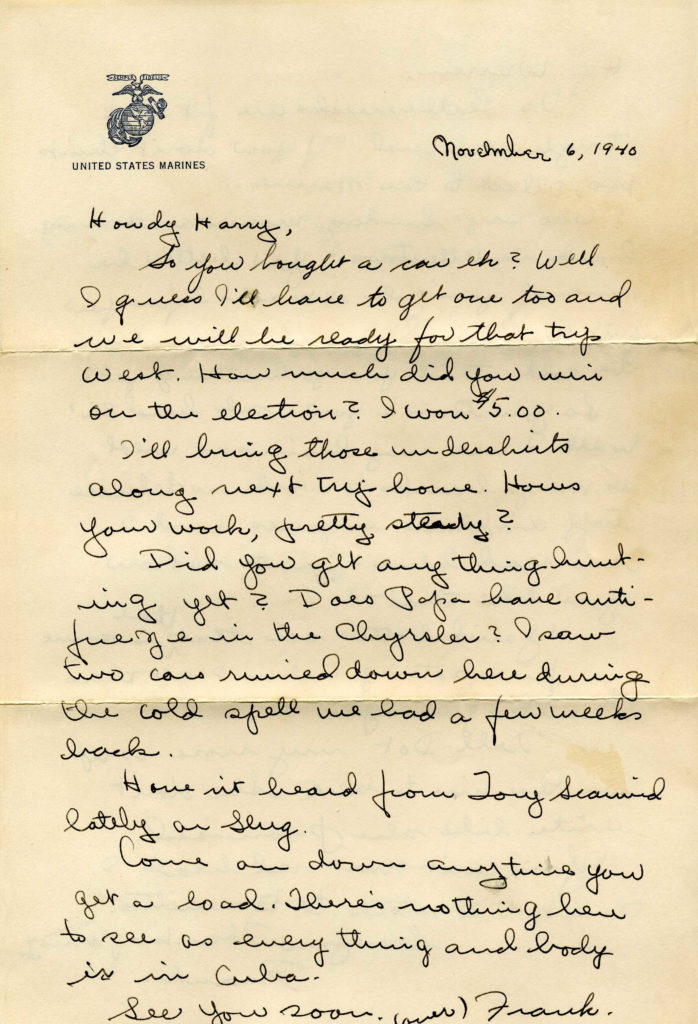 UNITED STATES MARINES
November 6, 1940
Howdy Harry,
So you bought a car eh? Well
I guess I'll have to get one too and
we will be ready for that trip
West. How much did you win
on the election? I won $5.00.
I'll bring those undershirts
along next trip home. Hows
your work, pretty steady?
Did you get any thing hunt-
ing yet? Does Papa have anti-
freeze in the Chyrsler? I saw
two cars ruined down here during
the cold spell we had a few weeks
back.
Haven't heard from Tony
lately or Slug.
Come on down anytime you
get a load. There's nothing here
to see as every thing and body
is in Cuba.
See you soon. (over) Frank.